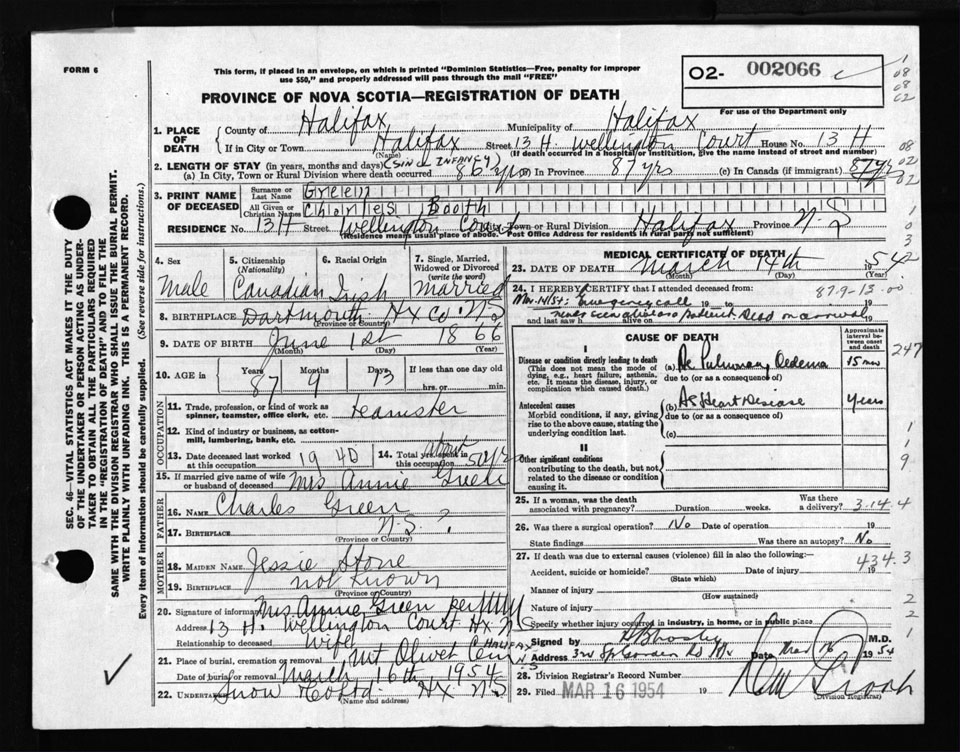 FORM 6
This form, if placed in an envelope, on which is printed "Dominion Statistics—Free, penalty for improper
use $50," and properly addressed will pass through the mail "FREE"
O2- 002066
PROVINCE OF NOVA SCOTIA—REGISTRATION OF DEATH
For use of the Department only
1. PLACE OF DEATH
County of Halifax Municipality of Halifax
If in City or Town Halifax Street 13 H. Wellington Court House No. 13 H
(Name) (If death occurred in a hospital or institution, give the name instead of street and number)
2. LENGTH OF STAY (in years, months and days) (SINCE INFANCY)
(a) In City, Town or Rural Division where death occurred 86 yrs (b) In Province 87 yrs (c) In Canada (if immigrant) 87 yrs
3. PRINT NAME OF DECEASED
Surname or Last Name Green
All Given or Christian Names Charles Booth
RESIDENCE No. 13 H Street Wellington Court Town or Rural Division Halifax Province N.S
(Residence means usual place of abode. Post Office Address for residents in rural parts not sufficient)
4. Sex Male
5. Citizenship (Nationality) Canadian
6. Racial Origin Irish
7. Single, Married, Widowed or Divorced (write the word) Married
8. BIRTHPLACE Dartmouth Hx Co. N.S
(Province or Country)
9. DATE OF BIRTH June 1st 1866
(Month) (Day) (Year)
10. AGE in Years 87 Months 9 Days 13 If less than one day old
hrs. or min.
OCCUPATION
11. Trade, profession, or kind of work as
spinner, teamster, office clerk, etc. teamster
12. Kind of industry or business, as cotton-
mill, lumbering, bank, etc.
13. Date deceased last worked
at this occupation 1940
14. Total yrs. spent in
this occupation about 50 yrs
15. If married give name of wife
or husband of deceased Mrs Annie Green
FATHER
16. NAME Charles Green
17. BIRTHPLACE N.S. ?
(Province or Country)
MOTHER
18. MAIDEN NAME Jessie Stone
19. BIRTHPLACE not known
(Province or Country)
20. Signature of informant Mrs Annie Green per
Address 13 H. Wellington Court Hx N.S
Relationship to deceased Wife
21. Place of burial, cremation or removal Mt Olivet Cem HALIFAX N.S
Date of burial or removal March 16th 1954
22. UNDERTAKER Snow Co Ltd. Hx N.S
(Name and address)
MEDICAL CERTIFICATE OF DEATH
23. DATE OF DEATH March 14th 1954
(Month) (Day) (Year)
24. I HEREBY CERTIFY that I attended deceased from: 87-9-13-00
Mar. 14/54: Emergency call 19 to 19
and last saw h alive on never seen alive as patient. Dead on arrival
CAUSE OF DEATH
Approximate interval between onset and death
I
Disease or condition directly leading to death
(This does not mean the mode of
dying, e.g., heart failure, asthenia,
etc. It means the disease, injury, or
complication which caused death.)
(a) Ac Pulmonary Oedema 15 min
due to (or as a consequence of)
Antecedent causes
Morbid conditions, if any, giving
rise to the above cause, stating the
underlying condition last.
(b) AS Heart Disease Years
due to (or as a consequence of)
(c)
II
Other significant conditions
contributing to the death, but not
related to the disease or condition
causing it.
25. If a woman, was the death
associated with pregnancy? Duration weeks. Was there a delivery? 3.14.4
26. Was there a surgical operation? No Date of operation 19
State findings Was there an autopsy? No
27. If death was due to external causes (violence) fill in also the following:—
Accident, suicide or homicide? Date of injury 19
434.3
(State which)
Manner of injury
(How sustained)
Nature of injury
Specify whether injury occurred in industry, in home, or in public place
Signed by M.D.
Address Date Mar 16 1954
28. Division Registrar's Record Number
29. Filed MAR 16 1954 19
(Division Registrar)
SEC. 46—VITAL STATISTICS ACT MAKES IT THE DUTY
OF THE UNDERTAKER OR PERSON ACTING AS UNDER-
TAKER TO OBTAIN ALL THE PARTICULARS REQUIRED
IN THE "REGISTRATION OF DEATH" AND TO FILE THE
SAME WITH THE DIVISION REGISTRAR WHO SHALL ISSUE THE BURIAL PERMIT.
WRITE PLAINLY WITH UNFADING INK. THIS IS A PERMANENT RECORD.
Every item of information should be carefully supplied. (See reverse side for instructions.)